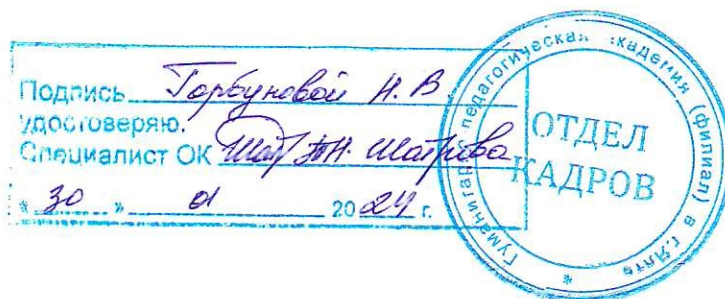 Подпись Горбуновой Н.В
удостоверяю.
Специалист ОК Шат Т.Н. Шатрова
« 30 » 01 2024 г.
Гуманитарно педагогическая академия (филиал) в г.Ялте *
ОТДЕЛ
КАДРОВ